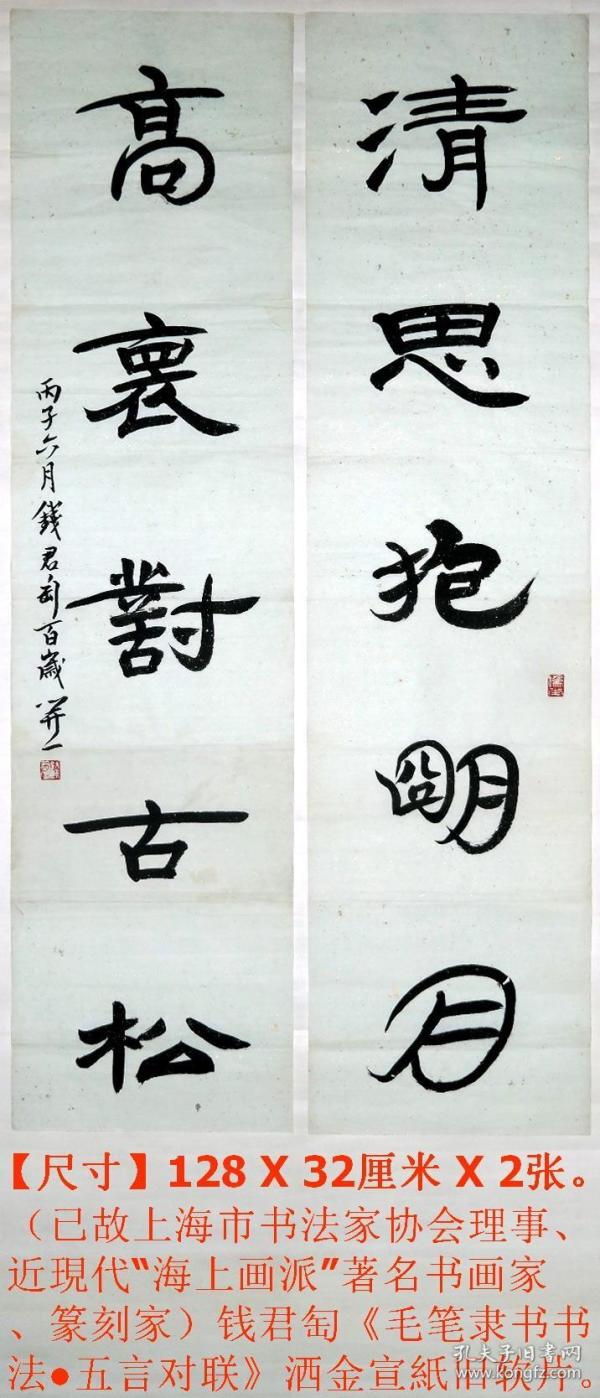 清思抱明月
高裏對古松
丙子六月錢君匋百歲笄一
【尺寸】128 X 32厘米 X 2张。
（已故上海市书法家协会理事、
近現代“海上画派”著名书画家
、篆刻家）钱君匋《毛笔隶书书
法●五言对联》洒金宣紙
孔夫子旧书网
kongfz.com